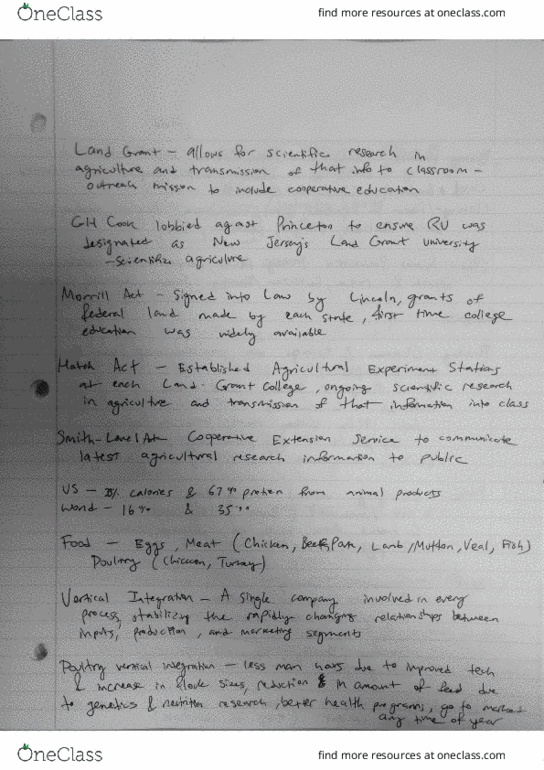 OneClass
find more resources at oneclass.com
Land Grant - allows for scientific research in
agriculture and transmission of that info to classroom -
outreach mission to include cooperative education
GH Cook lobbied against Princeton to ensure RU was
designated as New Jersey's Land Grant university
- Scientific agriculture
Morrill Act - Signed into Law by Lincoln, grants of
federal land made by each state, first time college
education was widely available
Hatch Act - Established Agricultural Experiment Stations
at each Land-Grant College, ongoing scientific research
in agriculture and transmission of that information into class
Smith-Lever Act Cooperative Extension Service to communicate
latest agricultural research information to public
US - calories & 67% protein from animal products
World - 16% & 35%
Food - Eggs, Meat (Chicken, Beef, Pork, Lamb/Mutton, Veal, Fish)
Poultry (Chicken, Turkey)
Vertical Integration - A single company involved in every
process, stabilizing the rapidly changing relationships between
inputs, production, and marketing segments
Poultry vertical integration - less man hours due to improved tech
& increase in flock sizes, reduction in amount of feed due
to genetics & nutrition research, better health programs, go to market
any time of year
OneClass
find more resources at oneclass.com